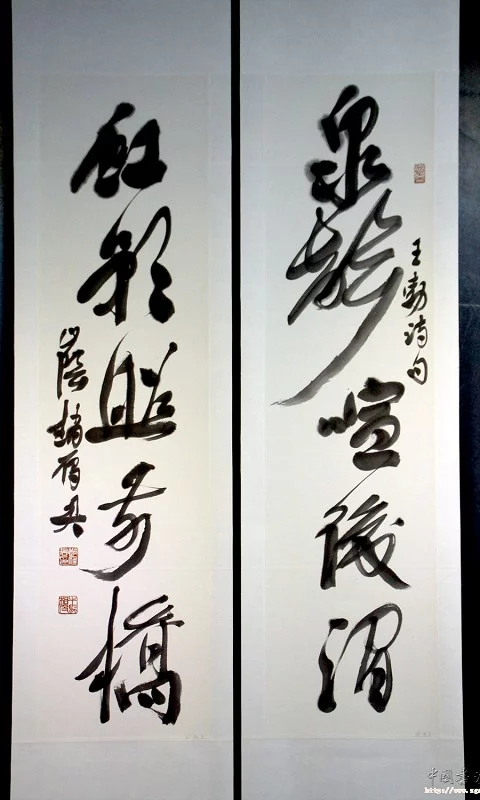 王勃詩句
泉聲喧後澗
虹影照前橋
山陰
中國書